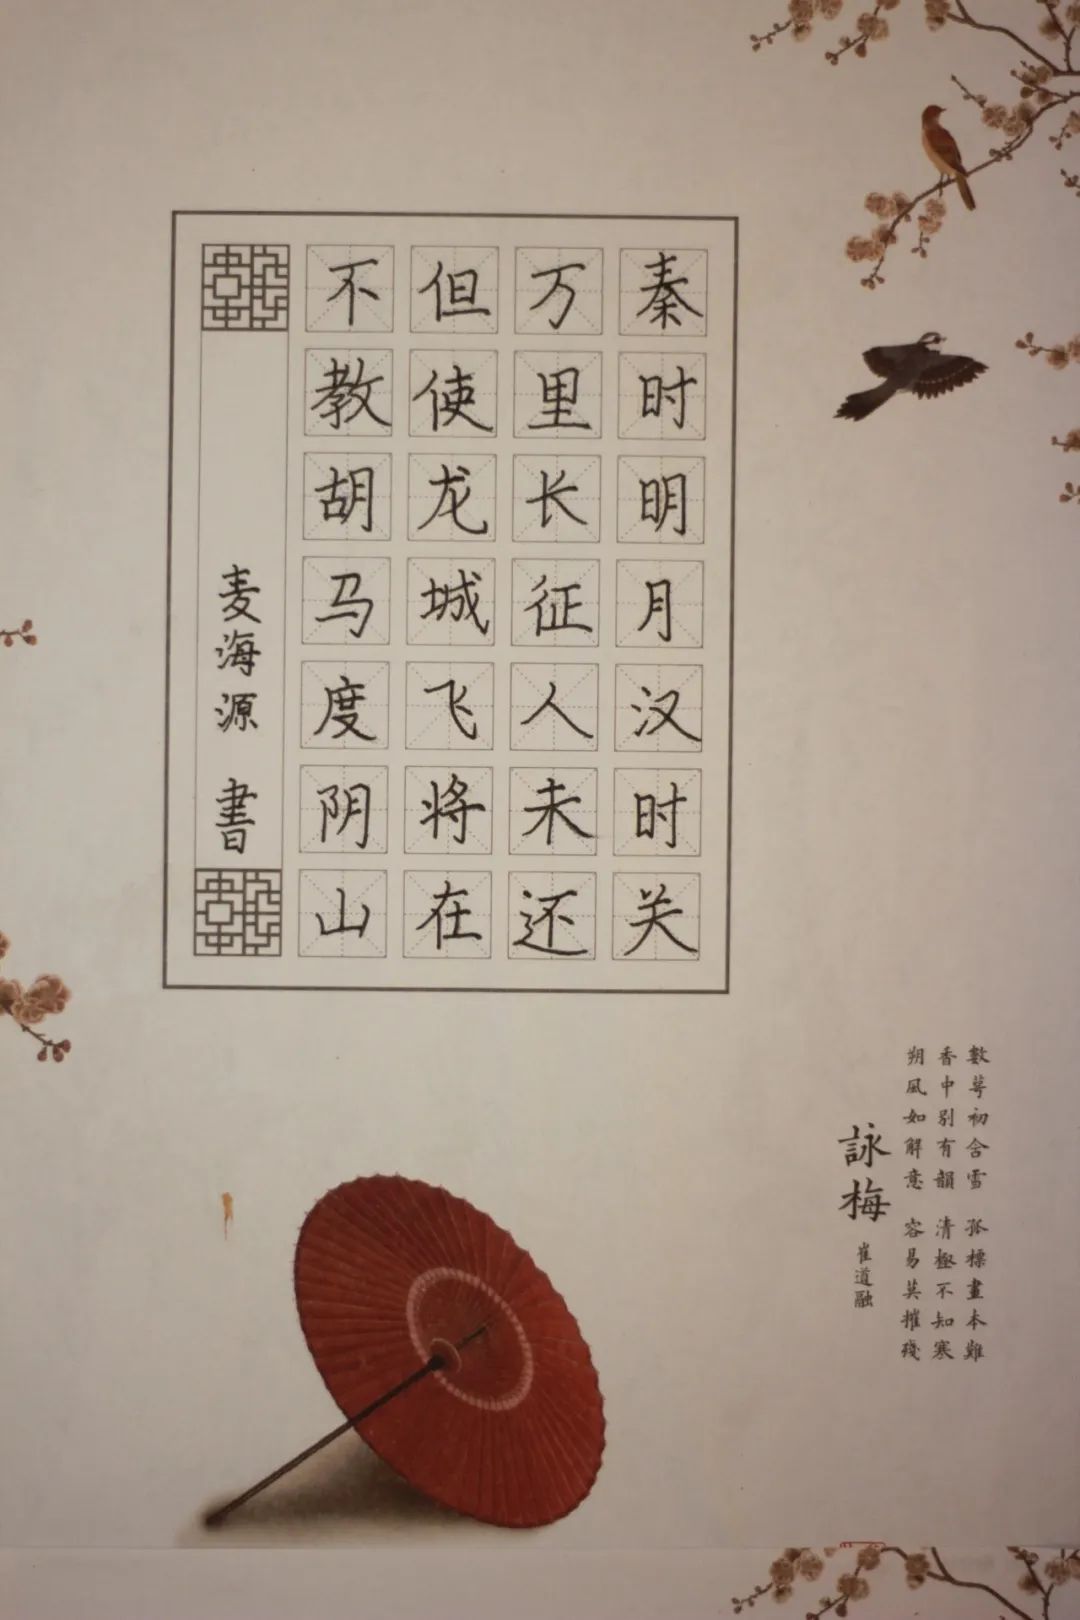 秦时明月汉时关
万里长征人未还
但使龙城飞将在
不教胡马度阴山
麦海源 書
數萼初含雪 孤標畫本難
香中别有韻 清極不知寒
朔風如解意 容易莫摧殘
詠梅 崔道融